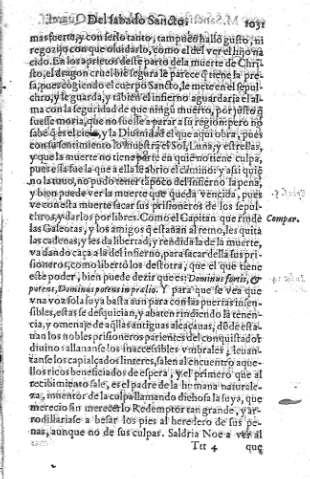 Del sabado Sancto. 1031
mas fuerte, y con serlo tanto, tampoco hallò gusto, ni
regozijo con que olvidarlo, como el del ver el hijo na
cido. En los aprietos deste parto de la muerte de Chri
sto, el dragon cruel bie segura le parece q̃ tiene la pre-
sa, pues cogiendo el cuerpo Sancto, le mete en el sepul-
chro, y le guarda, y tãbien el infierno aguardaria el al-
ma con la seguridad de que ningũ muerto, por justo q̃
fuesse moria, que no fuesse a parar a su region: pero no
sabe q̃ es el cielo, y la Diuinidad el que aqui obra, pues
con su sentimiento lo muestrã el Sol, Luna, y estrellas,
y que la muerte no tiene parte en quiẽ no tiene culpa,
pues ella fue la que a ella le abrio el camino: y assi quiẽ
no la tuuo, no pudo tener tãpoco del infierno la pena,
y bien puede ver la muerte que queda vencida, pues
ve con esta muerte sacar sus prisioneros de los sepul-
chros, y darlos por libres. Como el Capitan que rinde
Compar.
las Galeotas, y los amigos q̃ estauan al remo, les quita
las cadenas, y les da libertad, y rendida la de la muerte,
va dando caça a la del infierno, para sacar della sus pri-
sioneros, como libertò los destotra, que el que tiene
este poder, bien puede dezir que es: Dominus fortis, &
potens, Dominus potens in prælio. Y para que se vea que
vna voz sola suya basta aun para con las puertas insen-
sibles, estas se desquician, y abaten rindiendo la tenen-
cia, y omenaje de aq̃llas antiguas alcaçauas, dõde esta-
uan los nobles prisioneros parientes del conquistador
diuino sallananse los inaccessibles vmbrales, leuan-
tanse los capialçados linteres, salen al encuentro aque-
llos ricos beneficiados de espera, y el primero que al
recibimiento sale, es el padre de la humana naturale-
za, inuentor de la culpa llamando dichosa la suya, que
merecio sin merecerlo Redemptor tan grande, y ar-
rodillariase a besar los pies al heredero de sus pe-
nas, aunque no de sus culpas. Saldria Noe a ver al
Ttt 4 que